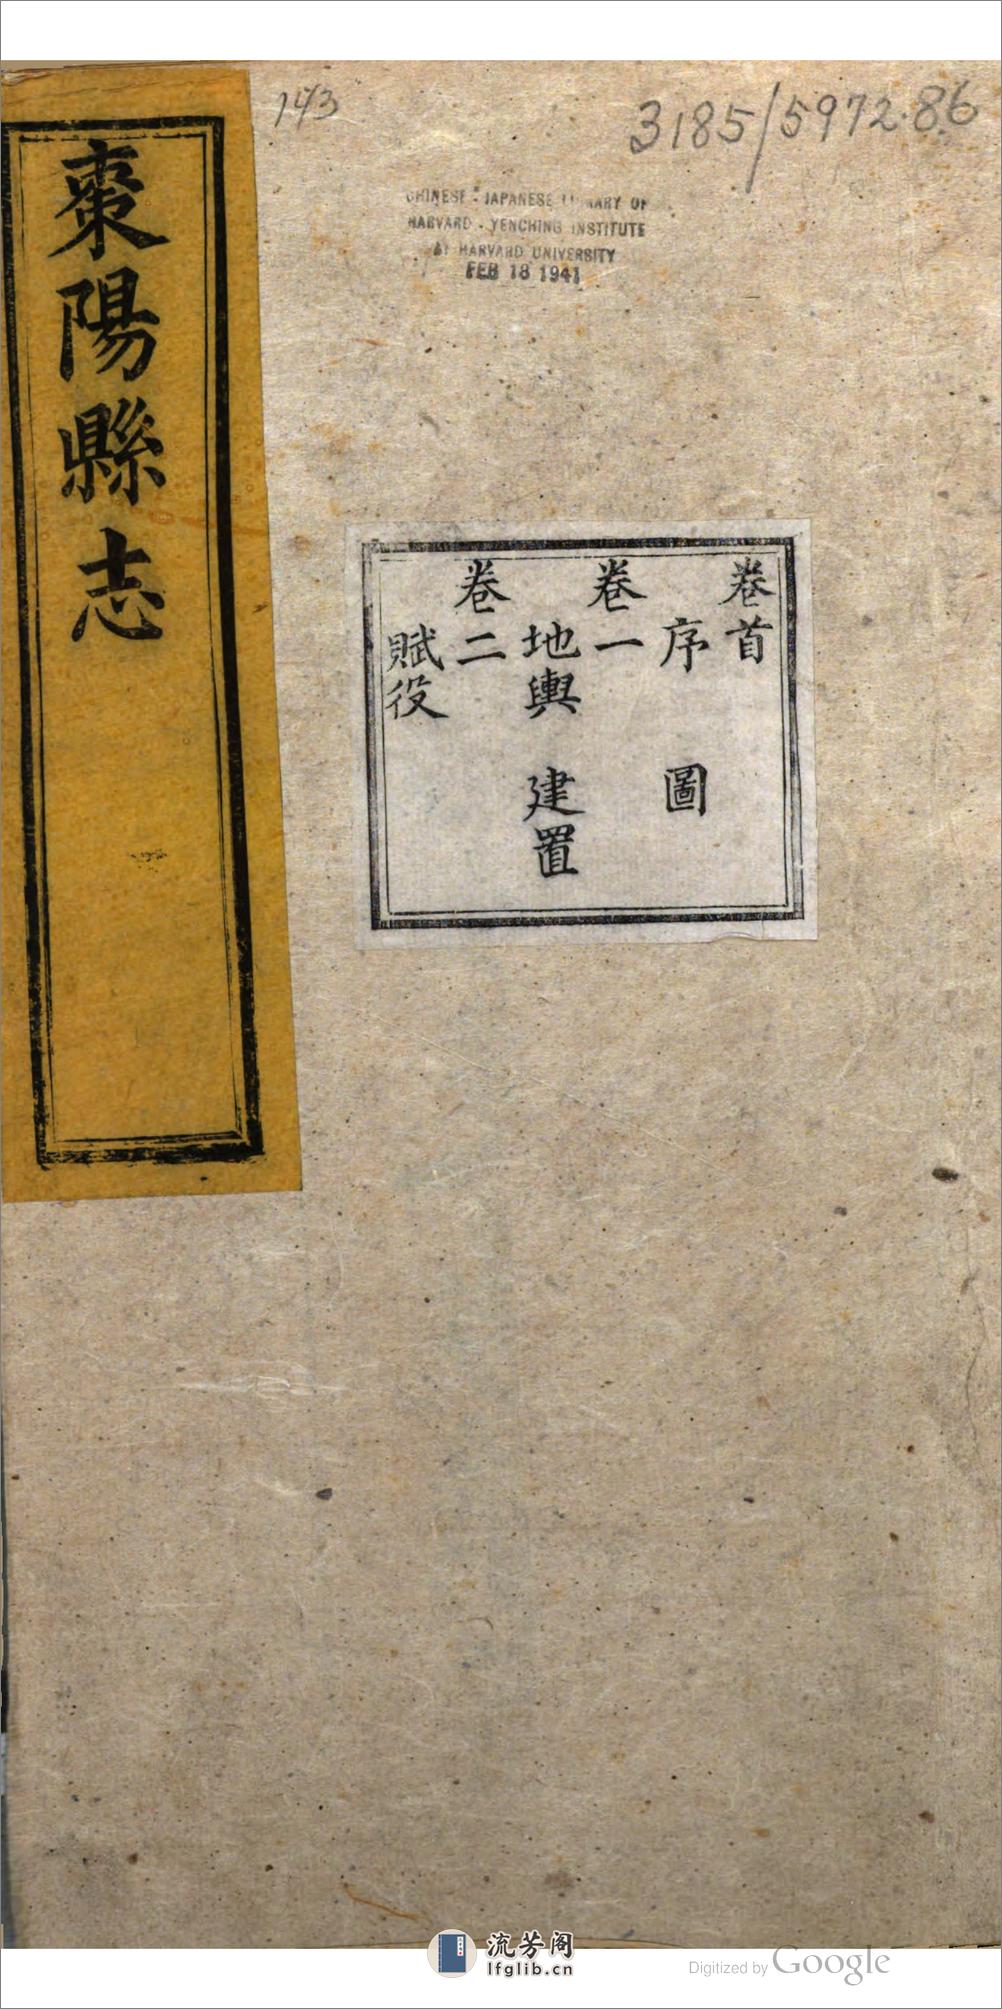 143
3185/5972.86
CHINESE - JAPANESE LIBRARY OF
HARVARD - YENCHING INSTITUTE
AT HARVARD UNIVERSITY
FEB 18 1941
棗陽縣志
卷首
序 圖
卷一
地輿 建置
卷二
賦役
流芳阁
lfglib.cn
Digitized by Google